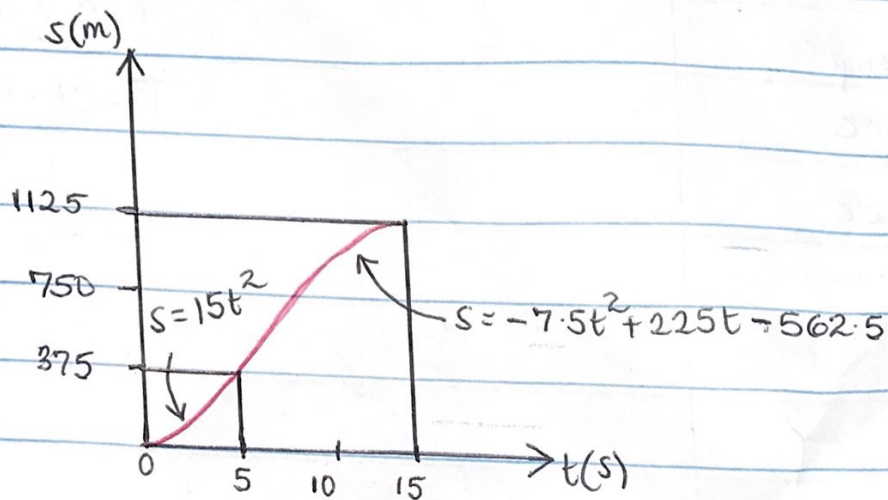 s(m)
1125
750
s=15t²
s=-7.5t²+225t-562.5
375
0
5
10
15
t(s)